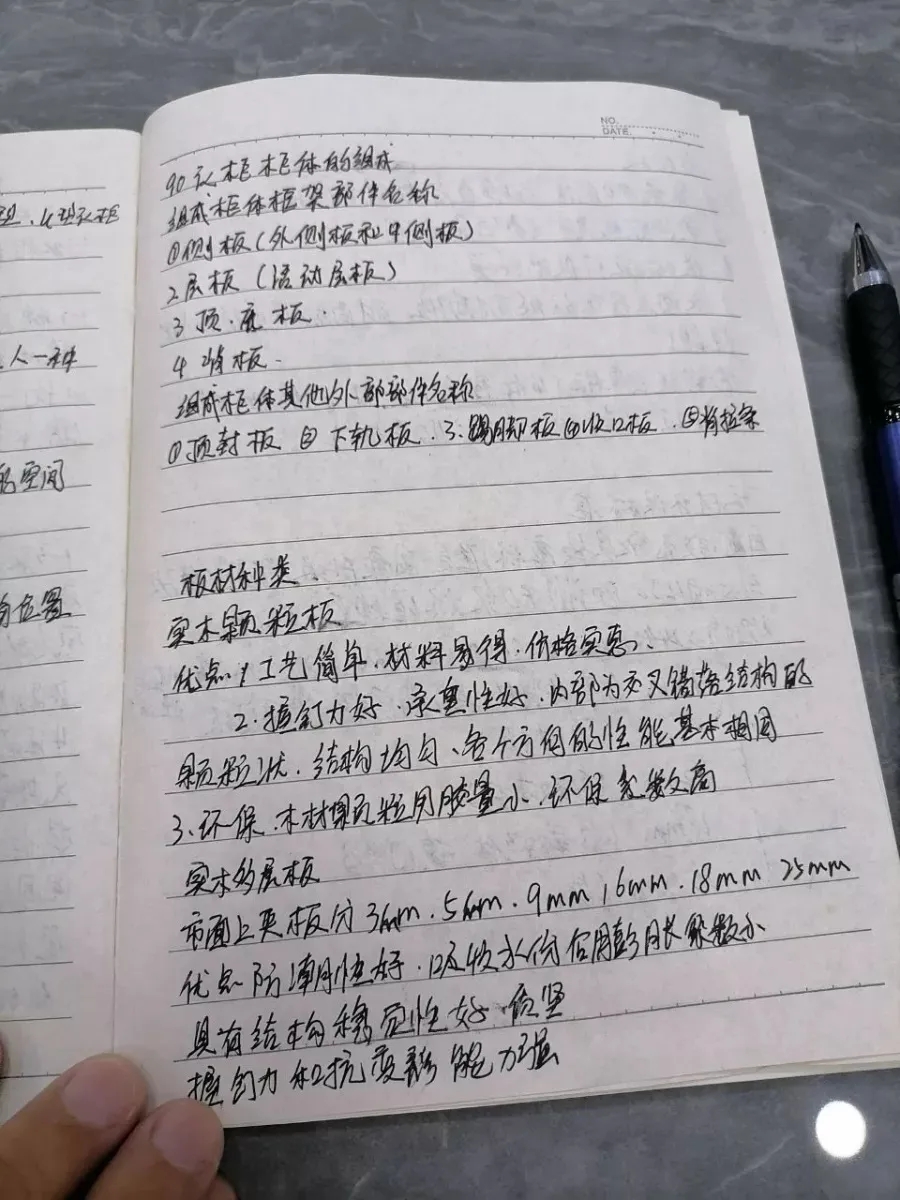 NO.
DATE.
衣柜柜体的组成
组成柜体框架部件名称
①侧板(外侧板和中侧板)
2层板(活动层板)
3顶.底板.
4背板.
组成柜体其他外部部件名称
①顶封板 ② 下轨板.3.踢脚板④收口板.⑤背拉条
板材种类.
实木颗粒板
优点1工艺简单.材料易得.价格实惠.
2.握钉力好.承重性好.内部为交叉错落结构的
颗粒状.结构均匀、各个方向的性能基本相同
3.环保.木材颗粒用胶量小.环保系数高
实木多层板
市面上夹板分3mm.5mm.9mm 16mm.18mm 25mm
优点防潮性好.吸收水份膨胀系数小
具有结构稳定性好.质坚
握钉力和抗变形能力强
型.衣柜
人一种
的空间
位置